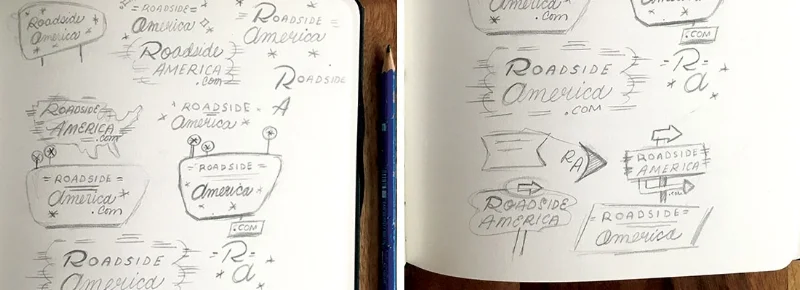 Roadside
America
ROADSIDE
America
Roadside
AMERICA
.com
ROADSIDE
America
ROADSIDE
A
ROADSIDE
AMERICA
.com
ROADSIDE
America
ROADSIDE
America
.com
ROADSIDE
America
.COM
ROADSIDE
America
R
a
.COM
ROADSIDE
America
.COM
R
a
RA
ROADSIDE
AMERICA
.com
ROADSIDE
AMERICA
ROADSIDE
America